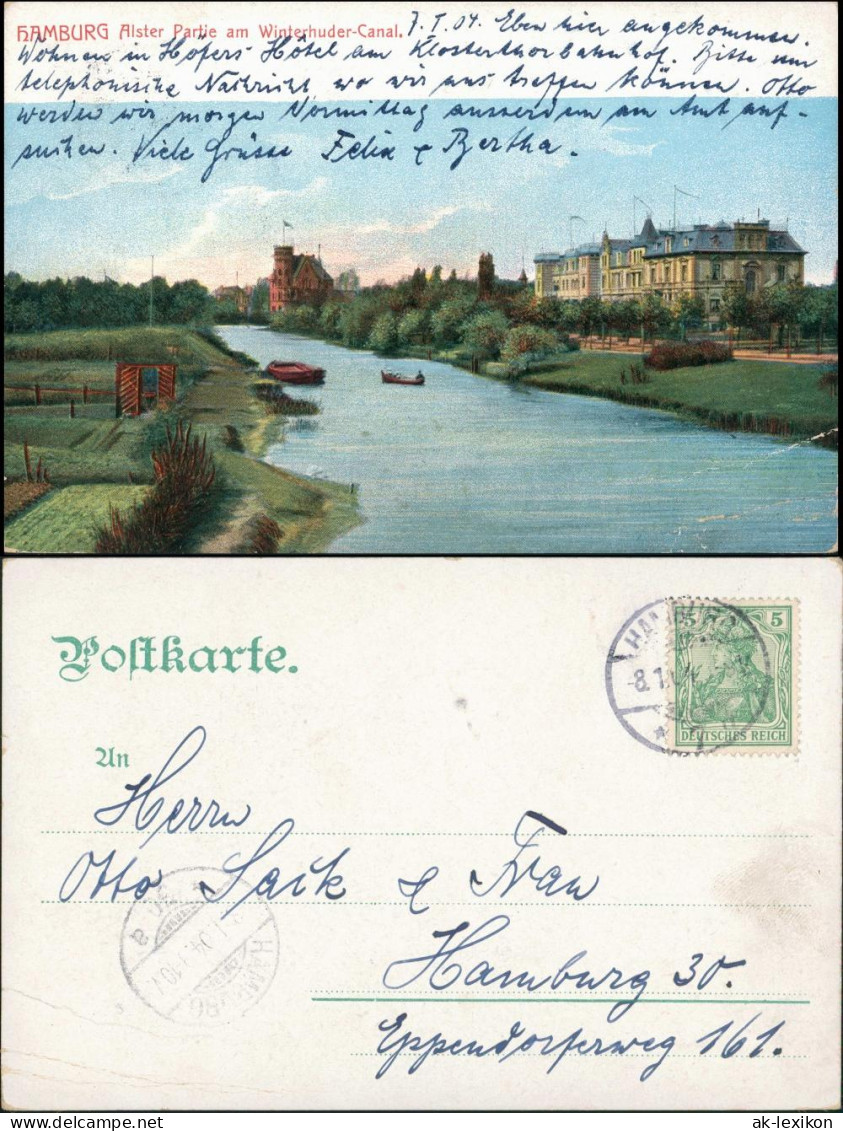 HAMBURG Alster Partie am Winterhuder-Canal. 7. I. 04. Eben hier angekommen.
Wohnen in Höfers Hôtel am Klosterthorbahnhof. Bitte um
telephonische Nachricht wo wir uns treffen können. Otto
werden wir morgen Vormittag ausserdem am Amt auf-
suchen. Viele Grüsse Felix & Bertha.
Postkarte.
HAMBURG
8.1.04
5 5
DEUTSCHES REICH
An
Herrn
Otto Sack & Frau
Hamburg 30.
Eppendorferweg 161.
HAMBURG
30
a
ak-lexikon